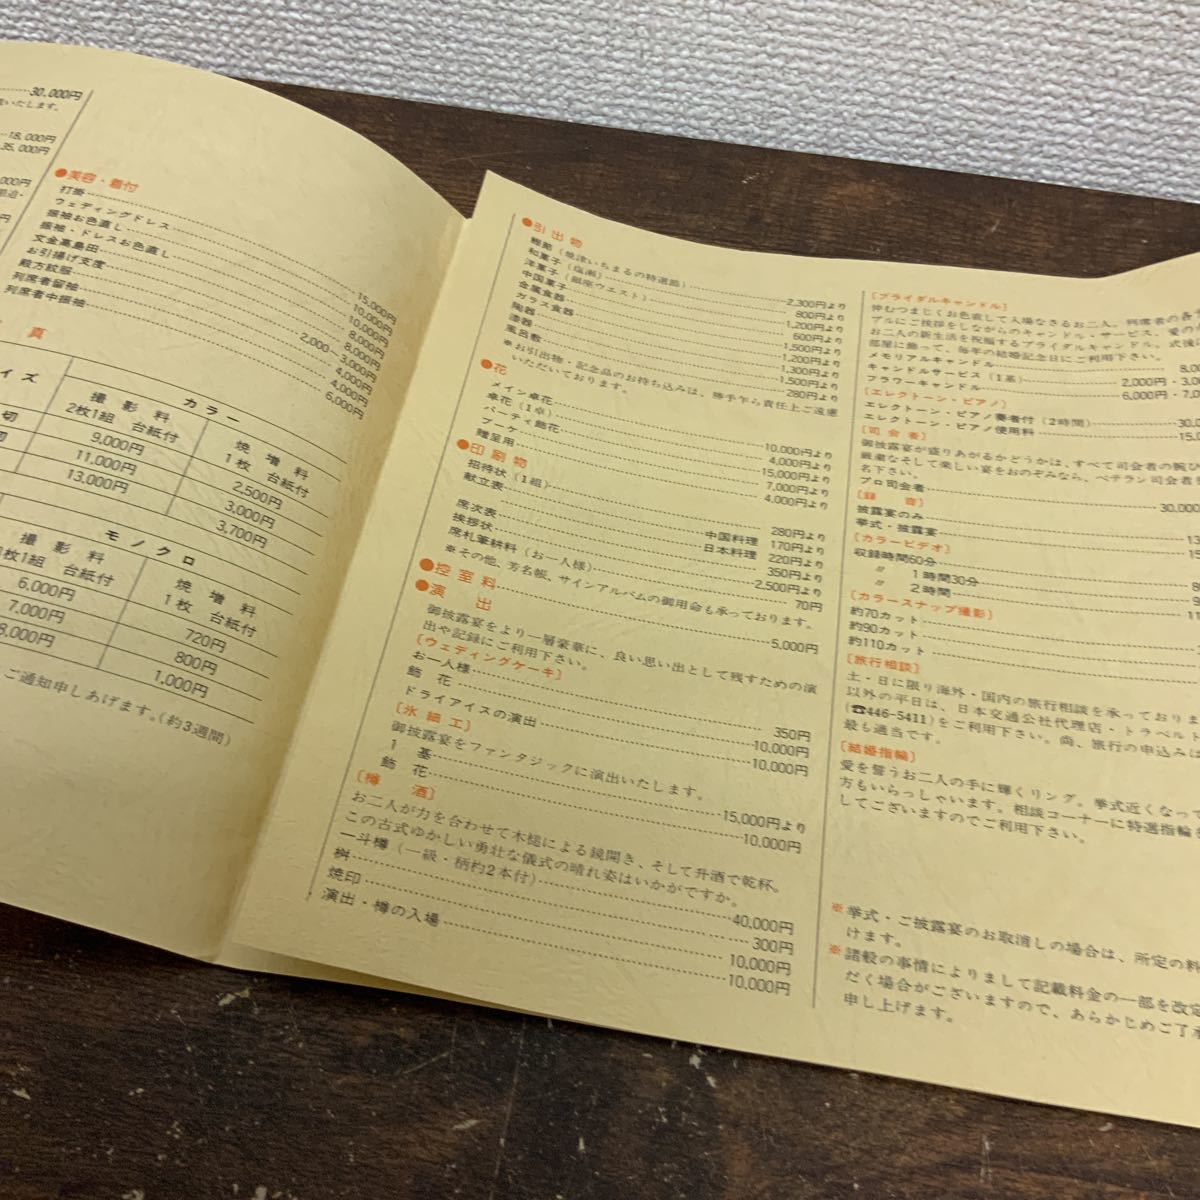 30,000円
いたします。
18,000円
35,000円
000円
円
●美容・着付
打掛 15,000円
ウェディングドレス 10,000円
振袖お色直し 10,000円
振袖・ドレスお色直し 8,000円
文金高島田 8,000円
お引揚げ支度 2,000〜3,000円
殿方紋服 4,000円
列席者留袖 4,000円
列席者中振袖 6,000円
真
イズ
カラー
撮影料
2枚1組 台紙付
焼増料
1枚 台紙付
切 9,000円 2,500円
切 11,000円 3,000円
13,000円 3,700円
モノクロ
撮影料
枚1組 台紙付
焼増料
1枚 台紙付
6,000円 720円
7,000円 800円
8,000円 1,000円
ご通知申しあげます。(約3週間)
●引出物
鰹節(焼津いちまるの特選節) 2,300円より
和菓子(塩瀬) 800円より
洋菓子(銀座ウエスト) 1,200円より
中国菓子 600円より
金属食器 1,500円より
ガラス食器 1,200円より
陶器 1,300円より
漆器 1,500円より
風呂敷 280円より
※お引出物・記念品のお持ち込みは、勝手乍ら責任上ご遠慮
いただいております。
●花
メイン卓花 10,000円より
卓花(1卓) 4,000円より
パーティ飾花 15,000円より
ブーケ 7,000円より
贈呈用 4,000円より
●印刷物
招待状(1組) 280円より
献立表 中国料理 170円より
日本料理 220円より
席次表 350円より
挨拶状 2,500円より
席札筆耕料(お一人様) 70円
※その他、芳名帳、サインアルバムの御用命も承っております。
●控室料 5,000円
●演出
御披露宴をより一層豪華に、良い思い出として残すための演
出や記録にご利用下さい。
〔ウェディングケーキ〕
お一人様 350円
飾花 10,000円
ドライアイスの演出 10,000円
〔氷細工〕
御披露宴をファンタジックに演出いたします。
1基 15,000円より
飾花 10,000円
〔樽酒〕
お二人が力を合わせて木槌による鏡開き、そして升酒で乾杯。
この古式ゆかしい勇壮な儀式の晴れ姿はいかがですか。
一斗樽(一級・柄杓2本付) 40,000円
桝 300円
焼印 10,000円
演出・樽の入場 10,000円
〔ブライダルキャンドル〕
仲むつまじくお色直して入場なさるお二人。列席者の各テ
ブルにご挨拶をしながらのキャンドル・サービス、愛の
お二人の新生活を祝福するブライダルキャンドル、式後
部屋に飾って、毎年の結婚記念日にご利用下さい。
メモリアルキャンドル 8,0
キャンドルサービス(1基) 2,000円・3,0
フラワーキャンドル 6,000円・7,0
〔エレクトーン・ピアノ〕
エレクトーン・ピアノ奏者付(2時間) 30,0
エレクトーン・ピアノ使用料 15,
〔司会者〕
御披露宴が盛りあがるかどうかは、すべて司会者の腕
厳粛なそして楽しい宴をおのぞみなら、ベテラン司会者
名下さい。
プロ司会者 30,000
〔録音〕
披露宴のみ 13
挙式・披露宴 15
〔カラービデオ〕
収録時間60分 8
〃 1時間30分 9
〃 2時間 11
〔カラースナップ撮影〕
約70カット
約90カット
約110カット
〔旅行相談〕
土・日に限り海外・国内の旅行相談を承っておりま
以外の平日は、日本交通公社代理店・トラベルト
(☎446-5411)をご利用下さい。尚、旅行の申込みは
最も適当です。
〔結婚指輪〕
愛を誓うお二人の手に輝くリング。挙式近くなって
方もいらっしゃいます。相談コーナーに特選指輪を
してございますのでご利用下さい。
※挙式・ご披露宴のお取消しの場合は、所定の料
けます。
※諸般の事情によりまして記載料金の一部を改定
だく場合がございますので、あらかじめご了承
申し上げます。